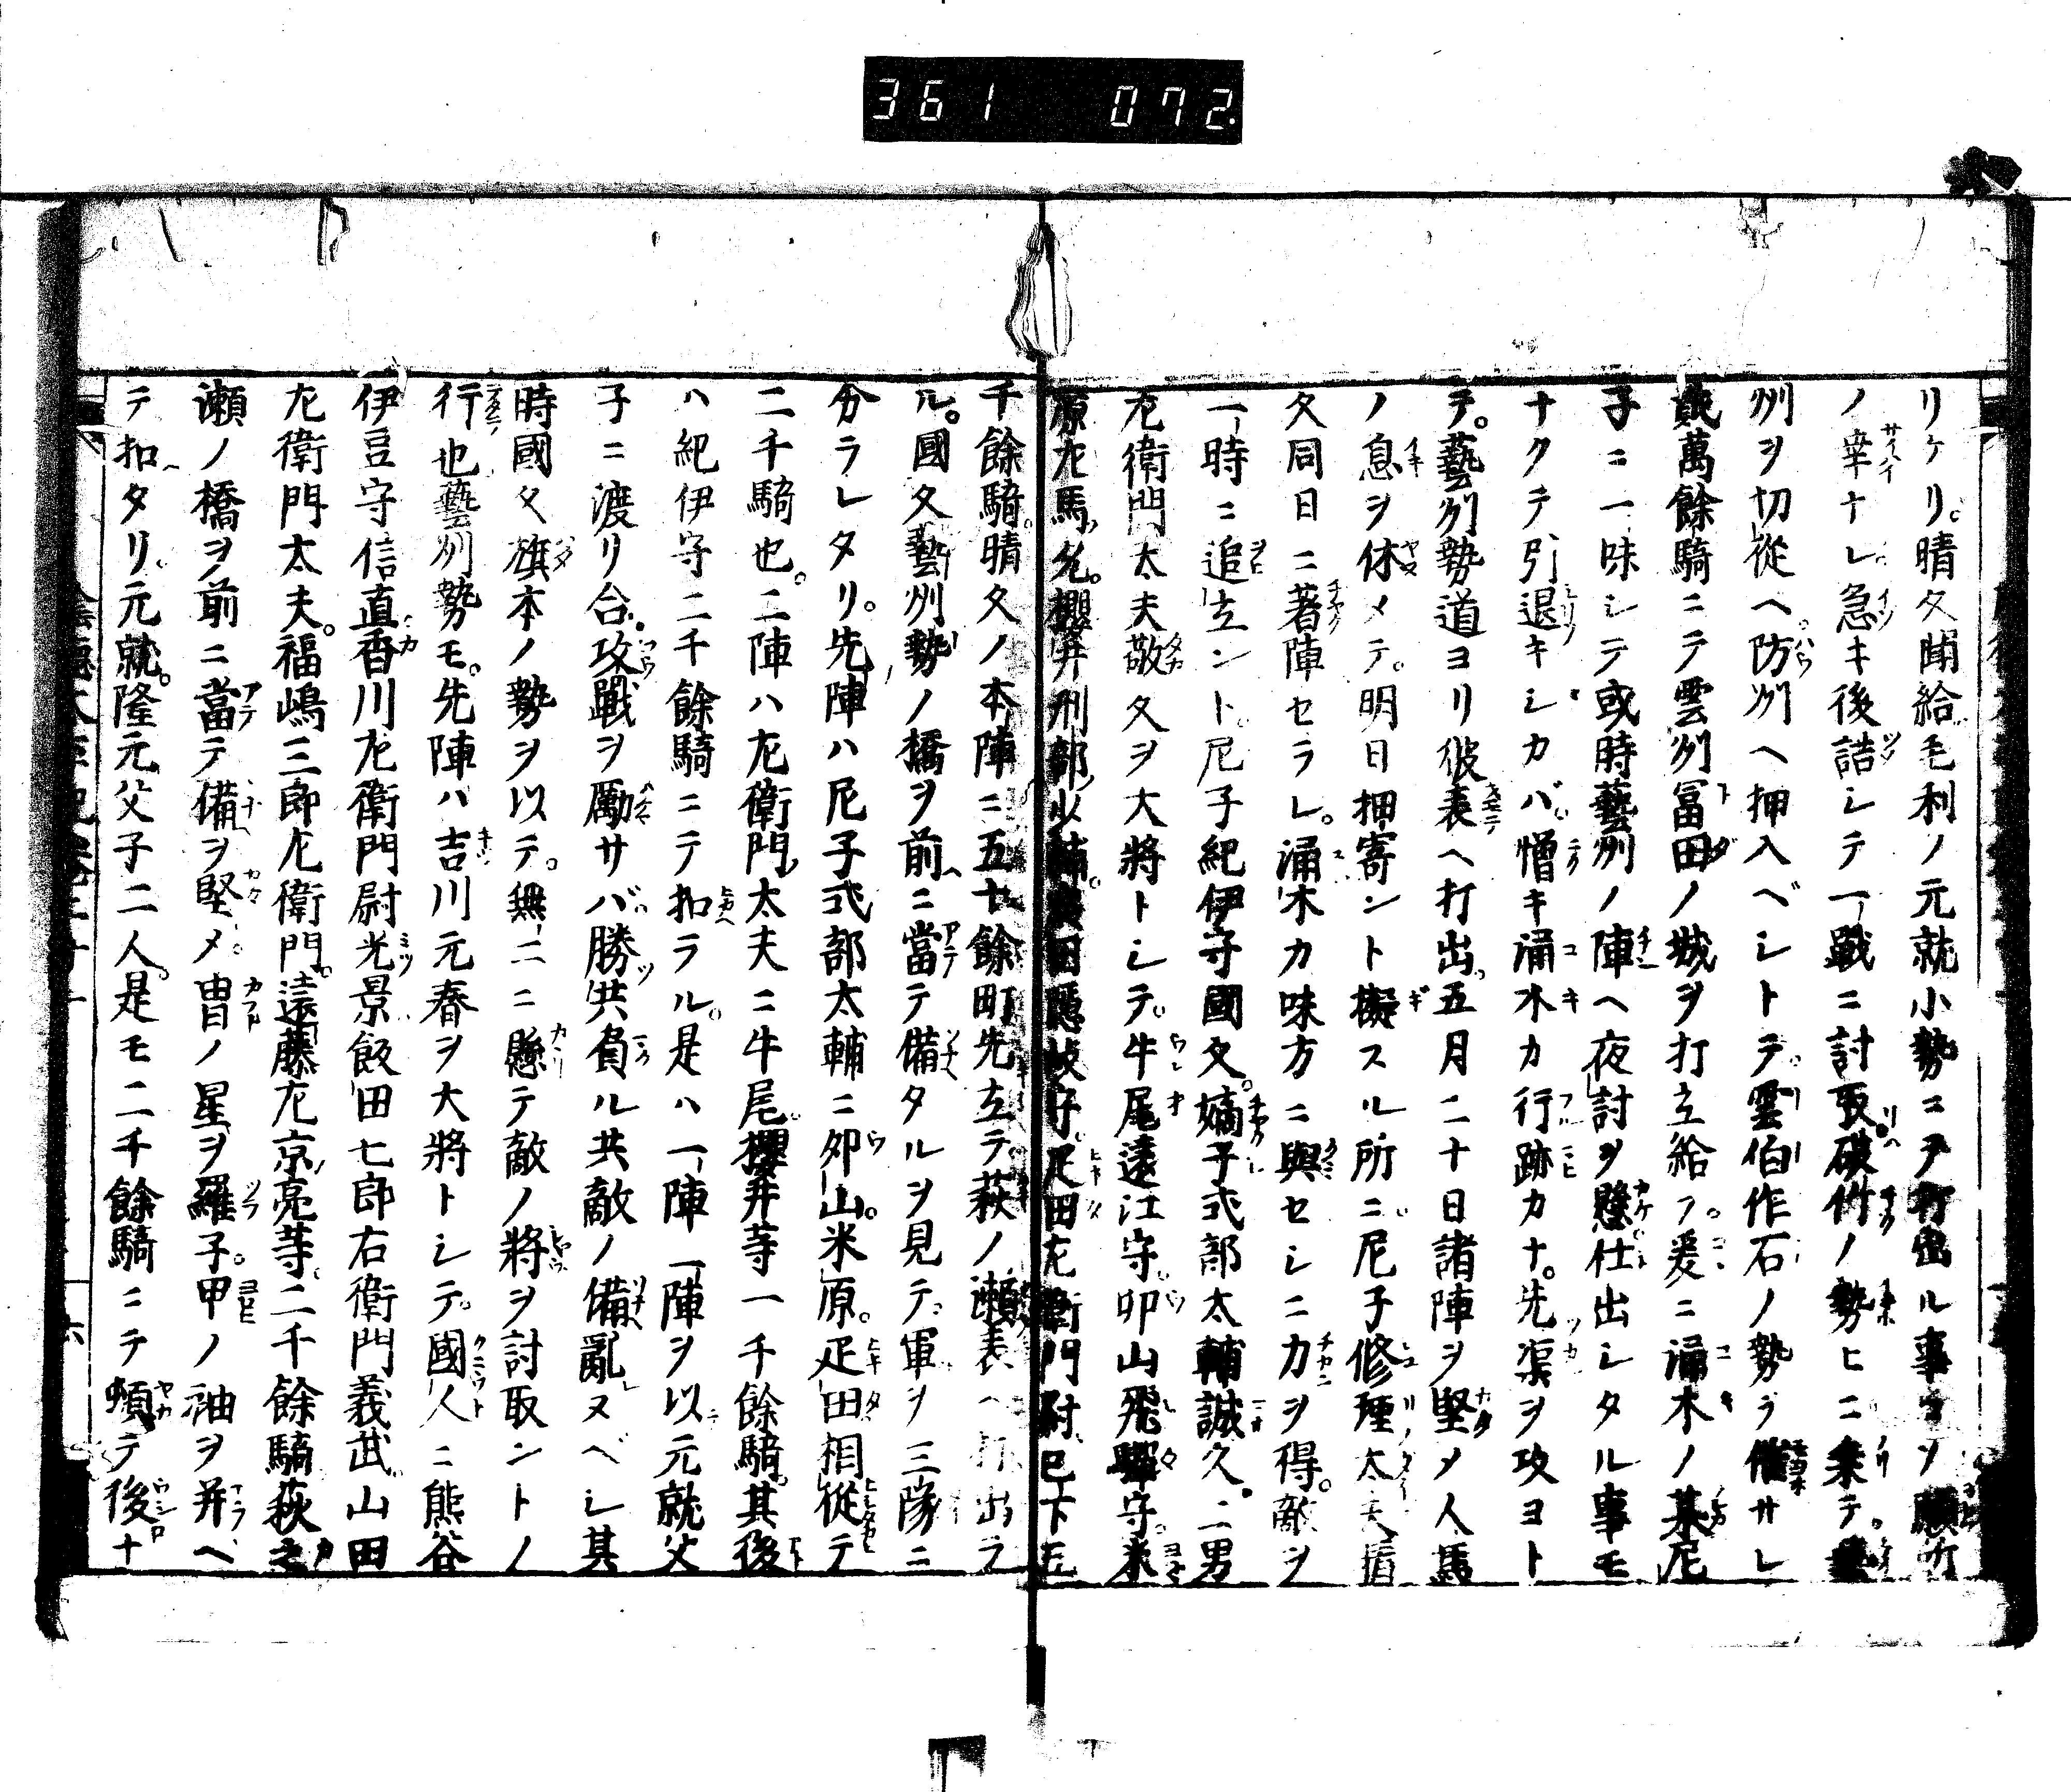 361 072.
リケリ。晴久聞給毛利ノ元就小勢コテ打出ル事コソ願所
ノ幸ナレ急キ後詰シテ一戰ニ討取破竹ノ勢ヒニ乗テ。藝
州ヲ切從ヘ。防州ヘ押入ベシトテ。雲伯作石ノ勢ヲ催サレ
貮萬餘騎ニテ雲州冨田ノ城ヲ打立給フ。爰ニ涌木ノ某尼
子ニ一味シテ或時藝州ノ陣ヘ夜討ヲ懸仕出シタル事モ
ナクテ引退キシカバ。憎キ涌木カ行跡カナ。先渠ヲ攻ヨト
テ。藝州勢道ヨリ彼表ヘ打出。五月二十日諸陣ヲ堅メ人馬
ノ息ヲ休メテ。明日押寄ント擬スル所ニ尼子修理太夫晴
久同日ニ著陣セラレ。涌木カ味方ニ與セシニ力ヲ得。敵ヲ
一時ニ追立ント。尼子紀伊守國久。嫡子式部太輔誠久。二男
左衛門太夫敬久ヲ大將トシテ。牛尾遠江守。卯山飛驒守。米
原左馬允。櫻井刑部少輔。 田隱岐守。疋田左衛門尉已下五
千餘騎。晴久ノ本陣ニ五十餘町先立テ萩ノ瀬表ヘ打出ラ
ル。國久藝州勢ノ橋ヲ前ニ當テ備タルヲ見テ。軍ヲ三隊ニ
分ラレタリ。先陣ハ尼子式部太輔ニ卯山。米原。疋田相從テ
二千騎也。二陣ハ左衛門太夫ニ牛尾。櫻井等一千餘騎。其後
ハ紀伊守二千餘騎ニテ扣ラル。是ハ一陣一陣ヲ以元就父
子ニ渡リ合。攻戰ヲ勵サバ勝共負ル共敵ノ備亂ヌベシ其
時國久旗本ノ勢ヲ以テ。無二ニ懸テ敵ノ將ヲ討取ントノ
行也藝州勢モ。先陣ハ吉川元春ヲ大將トシテ。國人ニ熊谷
伊豆守信直香川左衛門尉光景飯田七郎右衛門義武山田
左衛門太夫。福嶋三郎左衛門。遠藤左京亮等二千餘騎萩之
瀬ノ橋ヲ前ニ當テ備ヲ堅メ冑ノ星ヲ羅子。甲ノ袖ヲ并ヘ
テ扣タリ。元就。隆元父子二人。是モ二千餘騎ニテ頓テ後ナ